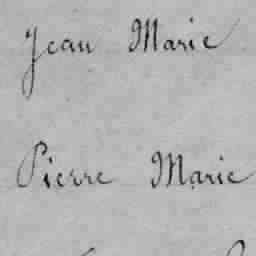 Jean Marie
Pierre Marie